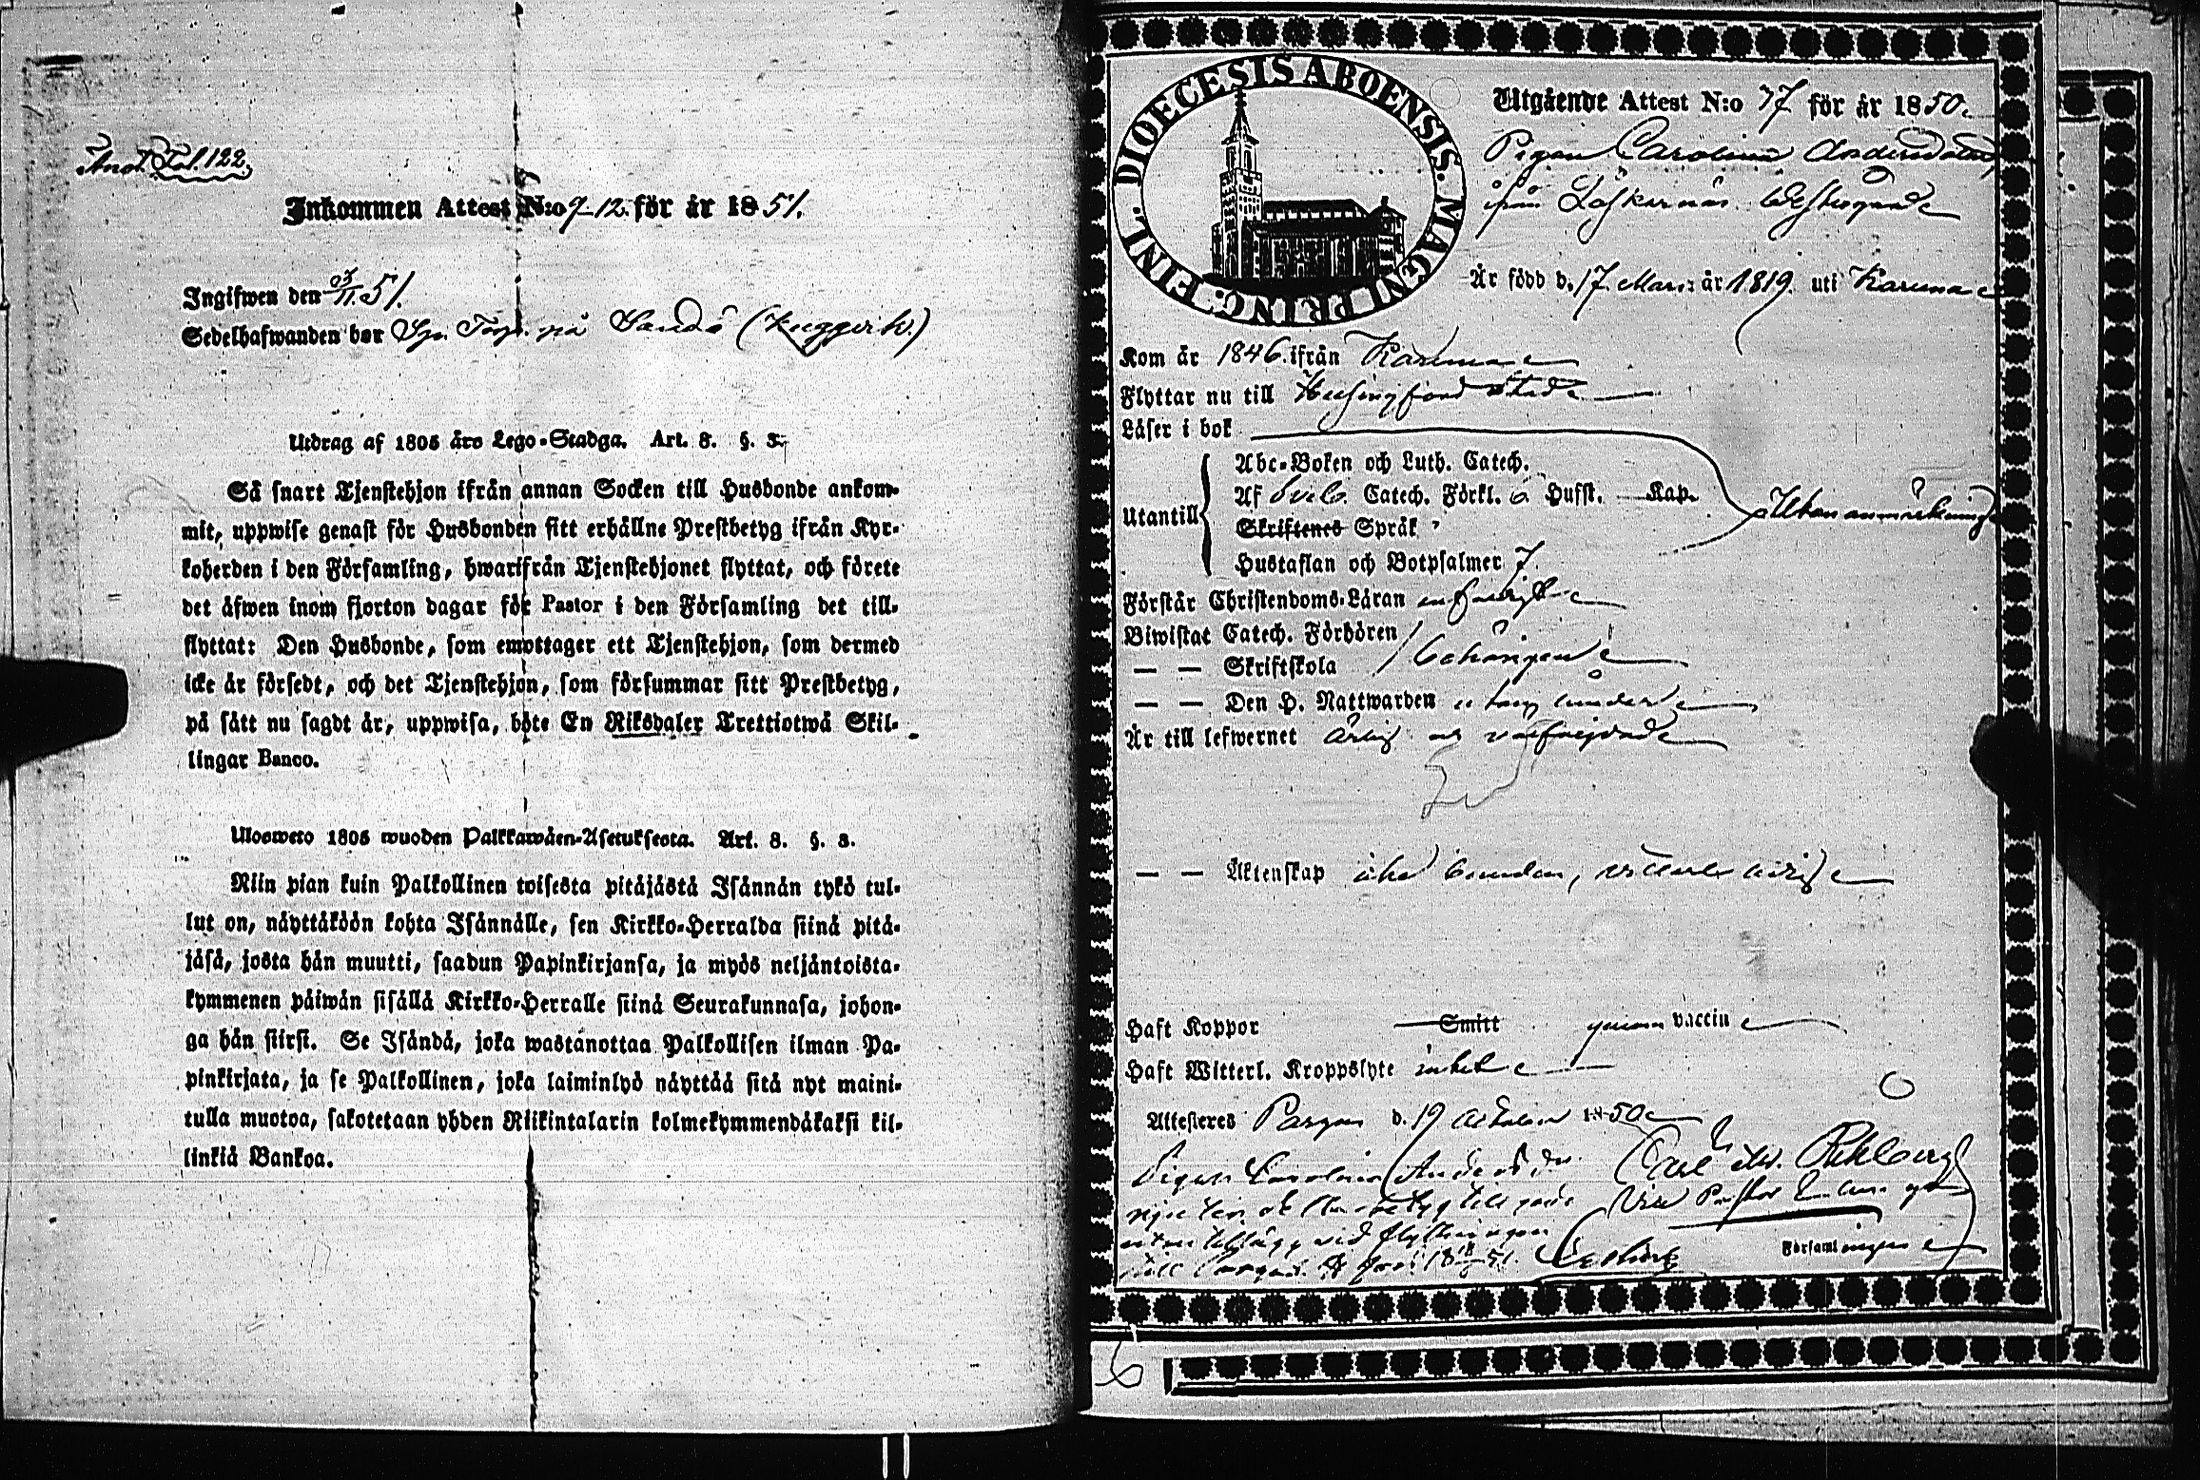 Anot. Fol. 122.
Inkommen Attest N:o 9-12. för år 1851.
Ingifwen den 3/11 51.
Sedelhafwanden bor på Sandö (Kuggvik.)
Utdrag af 1805 års Lego-Stadga. Art. 8. §. 3.
Så snart Tjenstehjon ifrån annan Socken till Husbonde ankom-
mit, uppwise genast för Husbonden sitt erhållne Prestbetyg ifrån Kyr-
koherden i den Församling, hwarifrån Tjenstehjonet flyttat, och förete
det äfwen inom fjorton dagar för Pastor i den Församling det till-
flyttat: Den Husbonde, som emottager ett Tjenstehjon, som dermed
icke är försedt, och det Tjenstehjon, som försummar sitt Prestbetyg,
på sätt nu sagdt är, uppwisa, böte En Riksdaler Trettiotwå Skil-
lingar Banco.
Ulosweto 1805 wuoden Palkkawäen-Asetuksesta. Art. 8. §. 3.
Niin pian kuin Palkollinen toisesta pitäjästä Isännän tykö tul-
lut on, näyttäköön kohta Isännälle, sen Kirkko-Herralda siinä pitä-
jäsä, josta hän muutti, saadun Papinkirjansa, ja myös neljäntoista-
kymmenen päiwän sisällä Kirkko-Herralle siinä Seurakunnasa, johon-
ga hän siirsi. Se Isändä, joka wastanottaa Palkollisen ilman Pa-
pinkirjata, ja se Palkollinen, joka laiminlyö näyttää sitä nyt maini-
tulla muotoa, sakotetaan yhden Riikintalarin kolmekymmendäkaksi kil-
linkiä Bankoa.
DIOECESIS ABOENSIS. MAGNI PRINC. FINL.
Utgående Attest N:o 77 för år 1850.
Pigan Carolina Andersdotter
ifrån Löskernäs Westergård
Är född d. 17 Mars år 1819. uti Karuna
Kom år 1846. ifrån Karuna
Flyttar nu till Helsingfors Stad
Läser i bok
Utantill
Abc-Boken och Luth. Catech.
Af Svebe. Catech. Förkl. 6 Hufst. Kap.
Skriftenes Språk
Hustaflan och Botpsalmer 7.
Utan anmärkning
Förstår Christendoms-Läran enfaldigt
Biwistat Catech. Förhören
— — Skriftskola
behörigen
— — Den H. Nattwarden
Är till lefwernet Ärlig och välfrejdad
— — Äktenskap obunden, veterligt
Haft Koppor Smitt genom vaccin
Haft Witterl. Kroppslyte intet
Attesteras Pargas d. 19 October 1850
Pigan Carolina Andersdr.
Carl
Vice Pastor
Församlingen
till Pargas
6